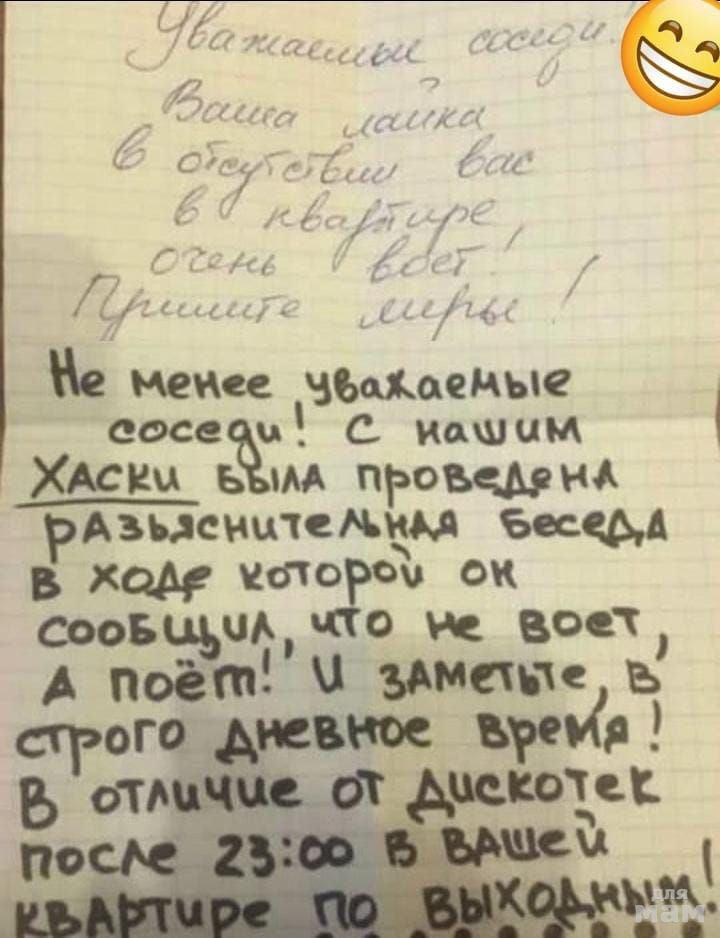 Уважаемые соседи!
Ваша лайка
в отсутствии вас
в квартире,
очень воет!
Примите меры!
Не менее уважаемые
соседи! С нашим
ХАСКИ БЫЛА проведенА
рАзъяснительнАя БесеДА
в ходе которой он
сооБщил, что не воет,
А поёт! И зАметьте, в
строго дневное время!
В отличие от дискотек
после 23:00 в вАшей
квАртире по выходным!
для
мам